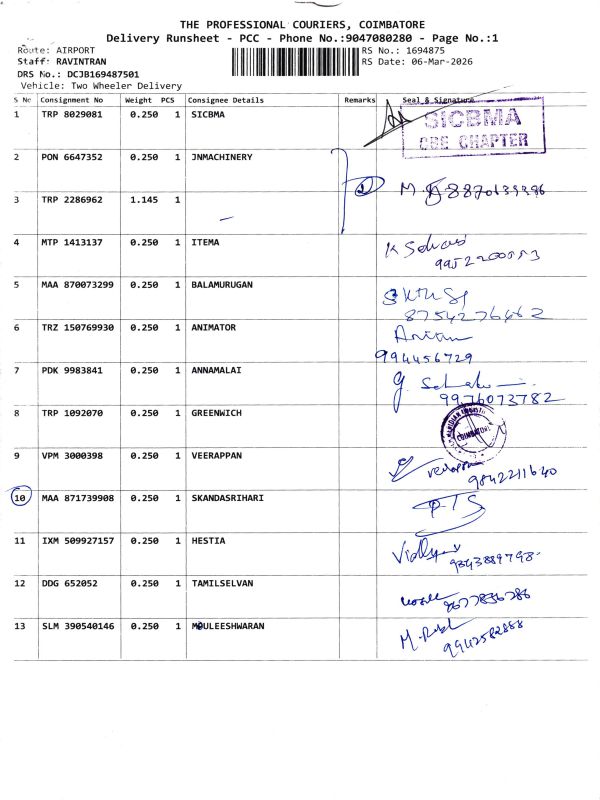 THE PROFESSIONAL COURIERS, COIMBATORE
Delivery Runsheet - PCC - Phone No.:9047080280 - Page No.:1
Route: AIRPORT RS No.: 1694875
Staff: RAVINTRAN RS Date: 06-Mar-2026
DRS No.: DCJB169487501
Vehicle: Two Wheeler Delivery
S No Consignment No Weight PCS Consignee Details Remarks Seal & Signature
1 TRP 8029081 0.250 1 SICBMA
SICBMA
CBE CHAPTER
2 PON 6647352 0.250 1 JNMACHINERY
3 TRP 2286962 1.145 1
4 MTP 1413137 0.250 1 ITEMA
5 MAA 870073299 0.250 1 BALAMURUGAN
8754276462
6 TRZ 150769930 0.250 1 ANIMATOR
994456729
7 PDK 9983841 0.250 1 ANNAMALAI
9976073782
8 TRP 1092070 0.250 1 GREENWICH
COIMBATORE
9 VPM 3000398 0.250 1 VEERAPPAN
9842211640
10 MAA 871739908 0.250 1 SKANDASRIHARI
11 IXM 509927157 0.250 1 HESTIA
12 DDG 652052 0.250 1 TAMILSELVAN
13 SLM 390540146 0.250 1 MOULEESHWARAN
9942582888